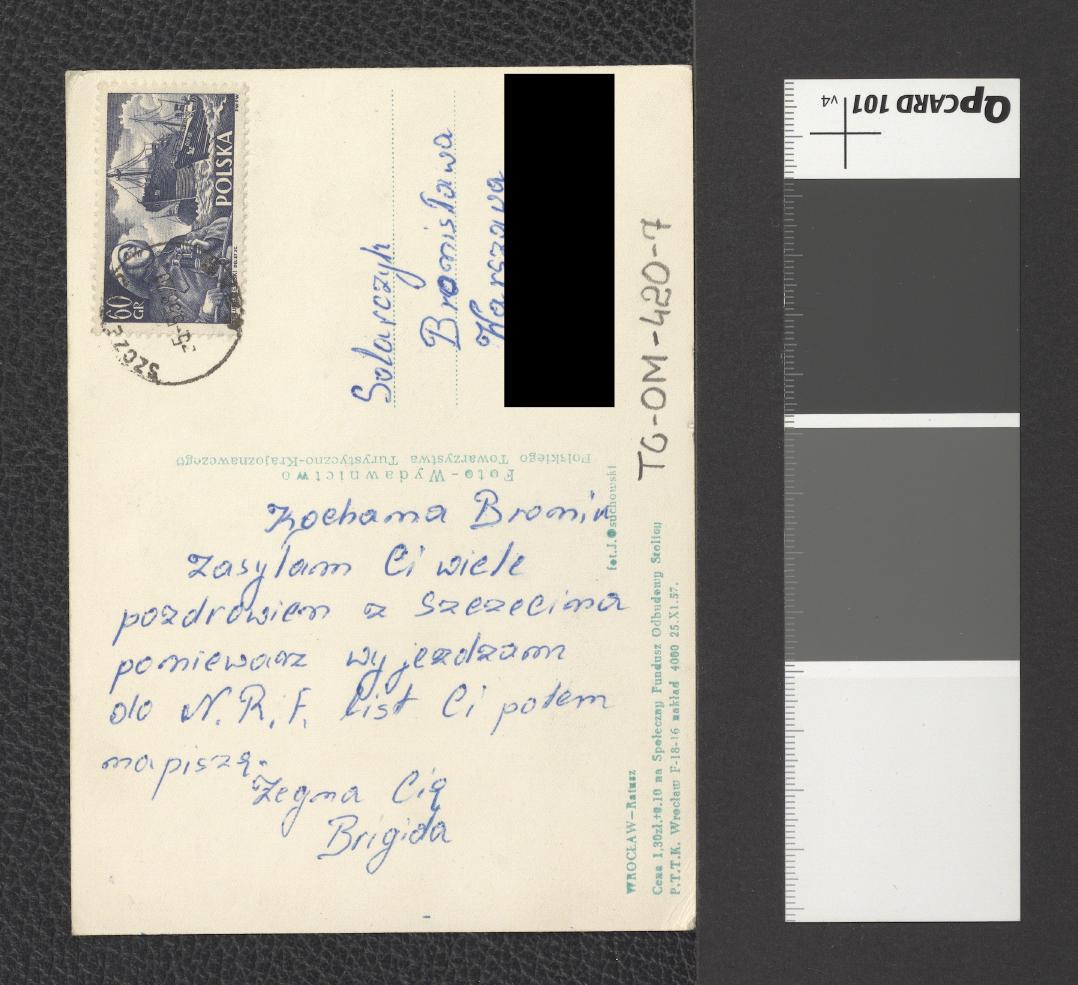 POLSKA
60
GR
Solarczyk
Bronisława
Warszawa
TG-OM-420-7
Foto-Wydawnictwo
Polskiego Towarzystwa Turystyczno-Krajoznawczego
Kochama Broniu
Zasyłam Ci wiele
pozdrowien z Szczecina
poniewarz wyjezdzam
do N.R.F. list Ci potem
napiszą.
Zegna Cię
Brigida
fot. J. Osuchowski
WROCŁAW—Ratusz
Cena 1,30zł.+0.10 na Społeczny Fundusz Odbudowy Stolicy
P.T.T.K. Wrocław F-18-16 nakład 4000 25.X1.57.
QPCARD 101
v4